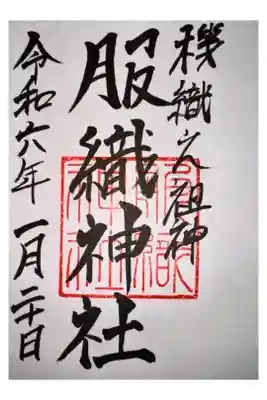 機織之祖神
服織神社
令和六年 一月二十日